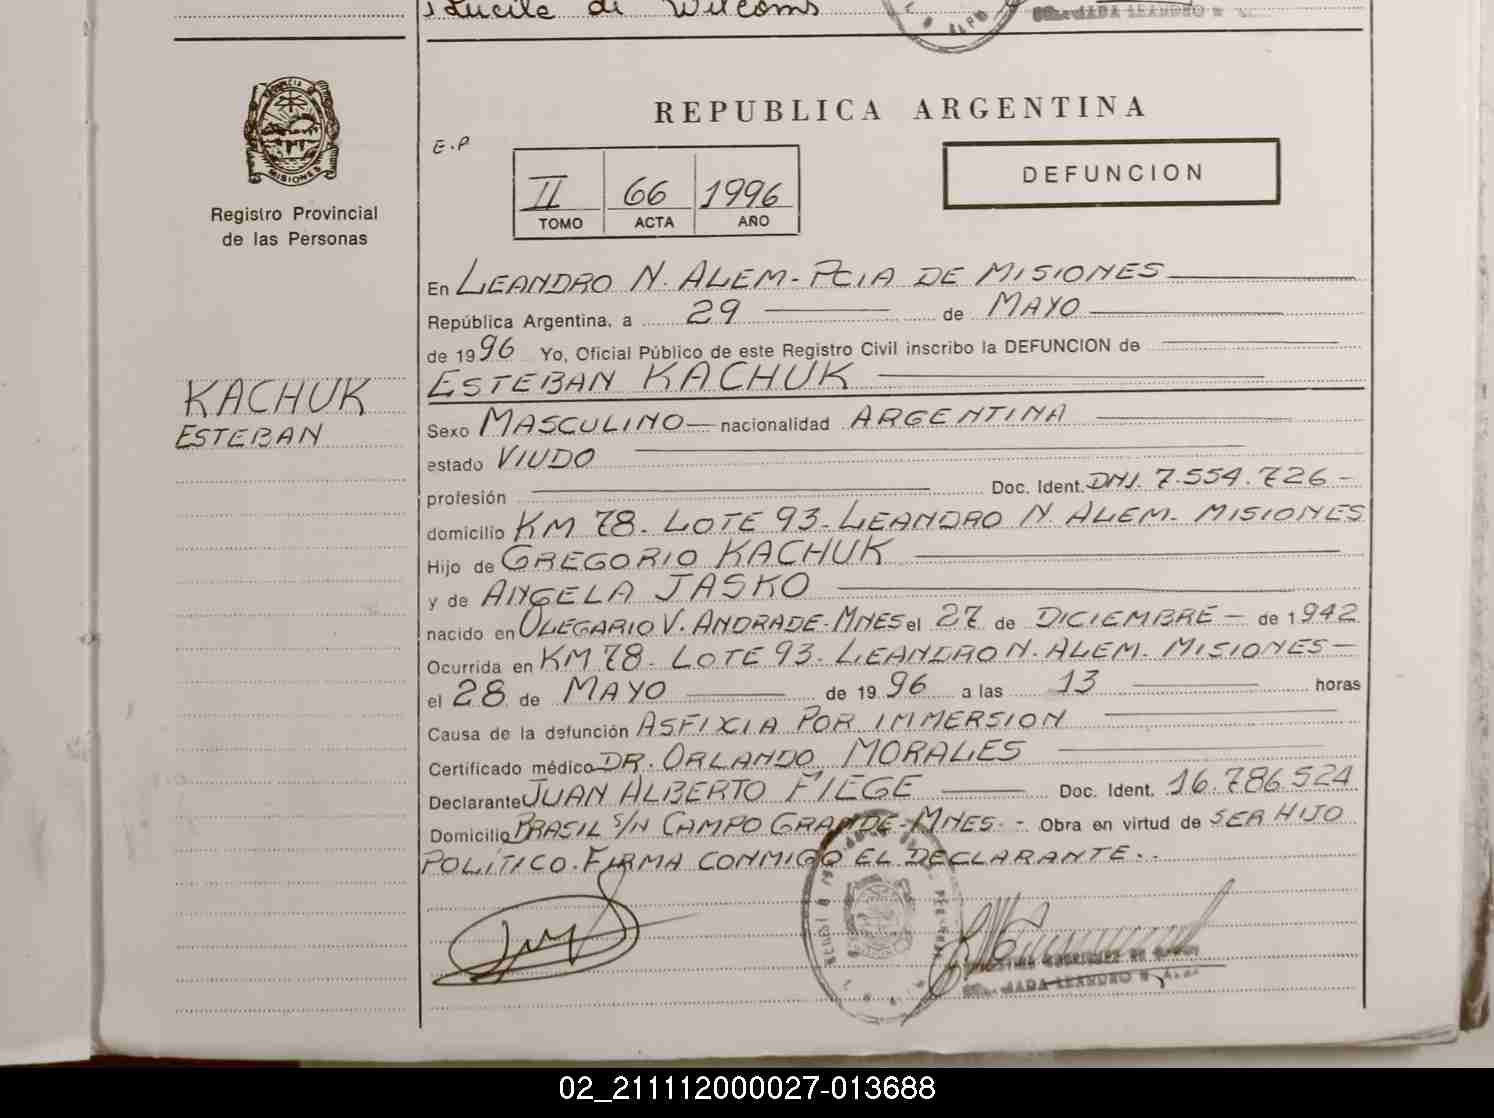 Lucila de Witcoms
REPUBLICA ARGENTINA
E.P
II 66 1996
TOMO ACTA AÑO
DEFUNCION
PROVINCIA D
MISIONES
Registro Provincial
de las Personas
KACHUK
ESTEBAN
En LEANDRO N. ALEM - PCIA DE MISIONES
República Argentina, a 29 de MAYO
de 1996 Yo, Oficial Público de este Registro Civil inscribo la DEFUNCION de
ESTEBAN KACHUK
Sexo MASCULINO nacionalidad ARGENTINA
estado VIUDO
profesión Doc. Ident. DNI. 7.554.726 -
domicilio KM 78. LOTE 93. LEANDRO N. ALEM. MISIONES
Hijo de GREGORIO KACHUK
y de ANGELA JASKO
nacido en OLEGARIO V. ANDRADE - MNES el 27 de DICIEMBRE - de 1942
Ocurrida en KM 78. LOTE 93. LEANDRO N. ALEM. MISIONES -
el 28 de MAYO de 1996 a las 13 horas
Causa de la defunción ASFIXIA POR IMMERSION
Certificado médico DR. ORLANDO MORALES
Declarante JUAN ALBERTO FIEGE Doc. Ident. 16.786.524
Domicilio BRASIL S/N CAMPO GRANDE - MNES - Obra en virtud de SER HIJO
POLÍTICO. FIRMA CONMIGO EL DECLARANTE..
LEANDRO N
02_211112000027-013688